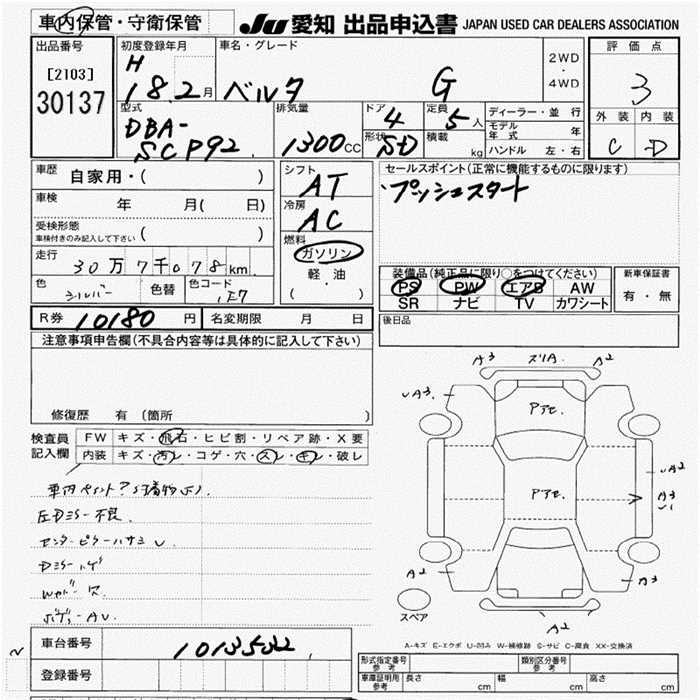 車内保管・守衛保管
JU 愛知 出品申込書 JAPAN USED CAR DEALERS ASSOCIATION
出品番号
[2103]
30137
初度登録年月
H
18.2月
車名・グレード
ベルタ G
2WD
・
4WD
評価点
3
外装 内装
C D
型式
DBA-
SCP92
排気量
1300cc
ドア 4
形状 SD
定員 5人
積載 kg
ディーラー・並行
モデル年式 年
ハンドル 左・右
車歴
自家用・( )
車検
年 月( 日)
受検形態
車検付きのみ記入して下さい ( )
走行
30万7千078km
色
シルバー
色替
色コード
1E7
シフト
AT
冷房
AC
燃料
ガソリン
軽油
( ・ )
セールスポイント(正常に機能するものに限ります)
プッシュスタート
装備品(純正品に限り○をつけてください)
PS PW エアB AW
SR ナビ TV カワシート
新車保証書
有・無
R券 10180円
名変期限 月 日
後日品
注意事項申告欄(不具合内容等は具体的に記入して下さい)
修復歴 有(箇所 )
検査員
記入欄
FW キズ・飛石・ヒビ割・リペア跡・X要
内装 キズ・汚レ・コゲ・穴・スレ・キレ・破レ
左Dミラー不良
センターピラーハサミU
Dミラーハゲ
A3 スリA A2
UA3
Pアセ
Pアセ
UA2
A3
U1
A2
A3
A2
スペア
A-キズ E-エクボ U-凹み W-補修跡 S-サビ C-腐食 XX-交換済
車台番号
1013532
登録番号
形式指定番号
参考
類別区分番号
参考
車庫証明用
参考
長さ cm 幅 cm 高さ cm